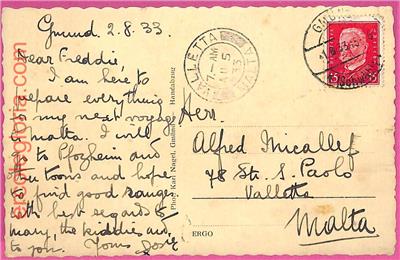 Gmund 2.8.33
Dear Freddie,
I am here to
prepare everything
my next voyage
Malta. I will
to Pforzheim and
and hope
to find good ranges
with best regards to
Mary, the kiddies and
to you. Yours
Herr
Alfred Micallef
78 Str. S. Paolo
Valletta
Malta
VALLETTA
7-AM
AU 5
33
MALTA
GMÜND
Phot. Karl Nagel, Gmünd
Handabzug
ERGO
epochglobia.com